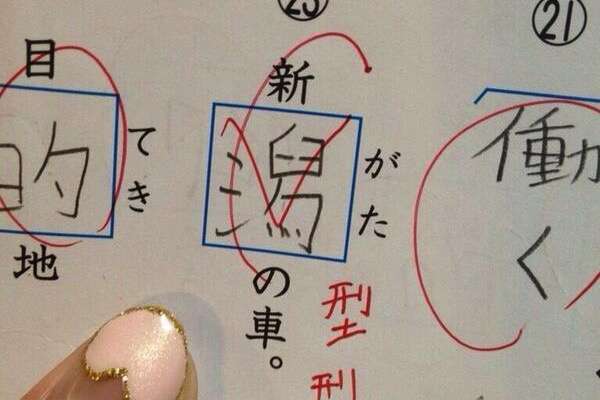 ㉑
働く
㉓
新潟の車。
がた
型型
目的地
てき